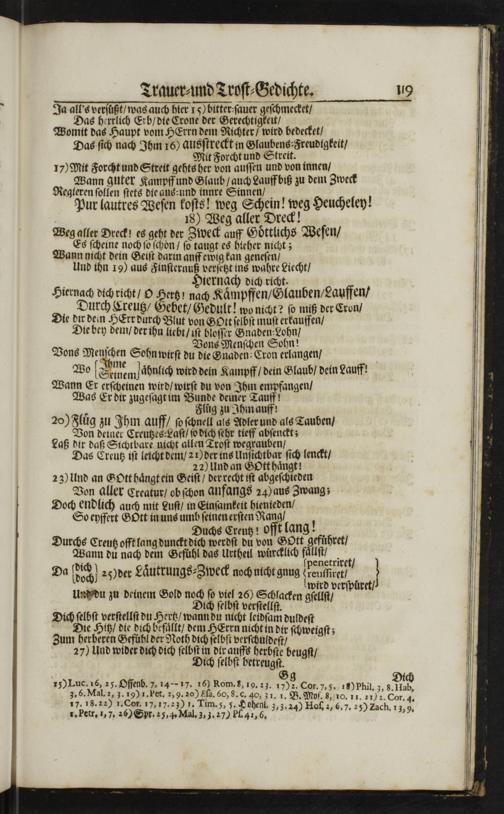 Trauer-und Trost-Gedichte. 119
Ja all's versüßt/ was auch hier 15) bitter-sauer geschmecket/
Das herrlich Erb/ die Crone der Gerechtigkeit/
Womit das Haupt vom HErrn dem Richter/ wird bedecket/
Das sich nach Ihm 16) ausstreckt in Glaubens-Freudigkeit/
Mit Forcht und Streit.
17) Mit Forcht und Streit gehts her von aussen und von innen/
Wann guter Kampff und Glaub/ auch Lauff biß zu dem Zweck
Regieren sollen stets die aus- und innre Sinnen/
Pur lautres Wesen kosts! weg Schein! weg Heucheley!
18) Weg aller Dreck!
Weg aller Dreck! es geht der Zweck auff Göttlichs Wesen/
Es scheine noch so schön/ so taugt es hieher nicht;
Wann nicht dein Geist darin auff ewig kan genesen/
Und ihn 19) aus Finsternuß versetzt ins wahre Liecht/
Hiernach dich richt.
Hiernach dich richt/ O Hertz! nach Kämpffen/Glauben/Lauffen/
Durch Creutz/ Gebet/ Gedult! wo nicht? so miß der Cron/
Die dir dein HErr durch Blut von GOtt selbst must erkauffen/
Die bey dem/ der ihn liebt/ ist blosser Gnaden-Lohn/
Vons Menschen Sohn!
Vons Menschen Sohn wirst du die Gnaden-Cron erlangen/
Wo [Ihme
Seinem] ähnlich wird dein Kampff/ dein Glaub/ dein Lauff!
Wann Er erscheinen wird/ wirst du von Ihm empfangen/
Was Er dir zugesagt im Bunde deiner Tauff!
Flüg zu Ihm auff!
20) Flüg zu Ihm auff/ so schnell als Adler und als Tauben/
Von deiner Creutzes-Last/ so dich sehr tieff absenckt;
Laß dir daß Sichtbare nicht allen Trost wegrauben/
Das Creutz ist leicht dem/ 21) der ins Unsichtbar sich lenckt/
22) Und an GOtt hängt!
23) Und an GOtt hängt ein Geist/ der recht ist abgeschieden
Von aller Creatur/ ob schon anfangs 24) aus Zwang;
Doch endlich auch mit Lust/ in Einsamkeit hienieden/
So eyffert GOtt in uns umb seinen ersten Rang/
Duchs Creutz! offt lang!
Durchs Creutz offt lang dunckt dich werdst du von GOtt geführet/
Wann du nach dem Gefühl das Urtheil würcklich fällst/
Da {dich
doch} 25) der Läutrungs-Zweck noch nicht gnug {penetriret/
reussiret/
wird verspüret/}
Und zu deinem Gold noch so viel 26) Schlacken gsellst/
Dich selbst verstellst.
Dich selbst verstellst du Hertz/ wann du nicht leidsam duldest
Die Hitz/ die dich befällt/ dem HErrn nicht in dir schweigst;
Zum herberen Gefühl der Noth dich selbst verschuldest/
27) Und wider dich dich selbst in dir auffs herbste beugst/
Dich selbst betreugst.
Gg Dich
15) Luc. 16, 25. Offenb. 7, 14--17. 16) Rom. 8, 19. 23. 17) 2. Cor. 7, 5. 18) Phil. 3, 8. Hab.
3, 6. Mal. 2, 3. 19) 1. Pet. 2, 9. 20) Esa. 60, 8. c. 40, 31. 1. B. Mos. 8, 10. 11. 21) 2. Cor. 4,
17. 18. 22) 1. Cor. 17, 17. 23) 1. Tim. 5, 5. Hohenl. 3, 3. 24) Hos. 2, 6. 7. 25) Zach. 13, 9.
1. Petr. 1, 7. 26) Spr. 25, 4. Mal. 3, 3. 27) Ps. 42, 6.